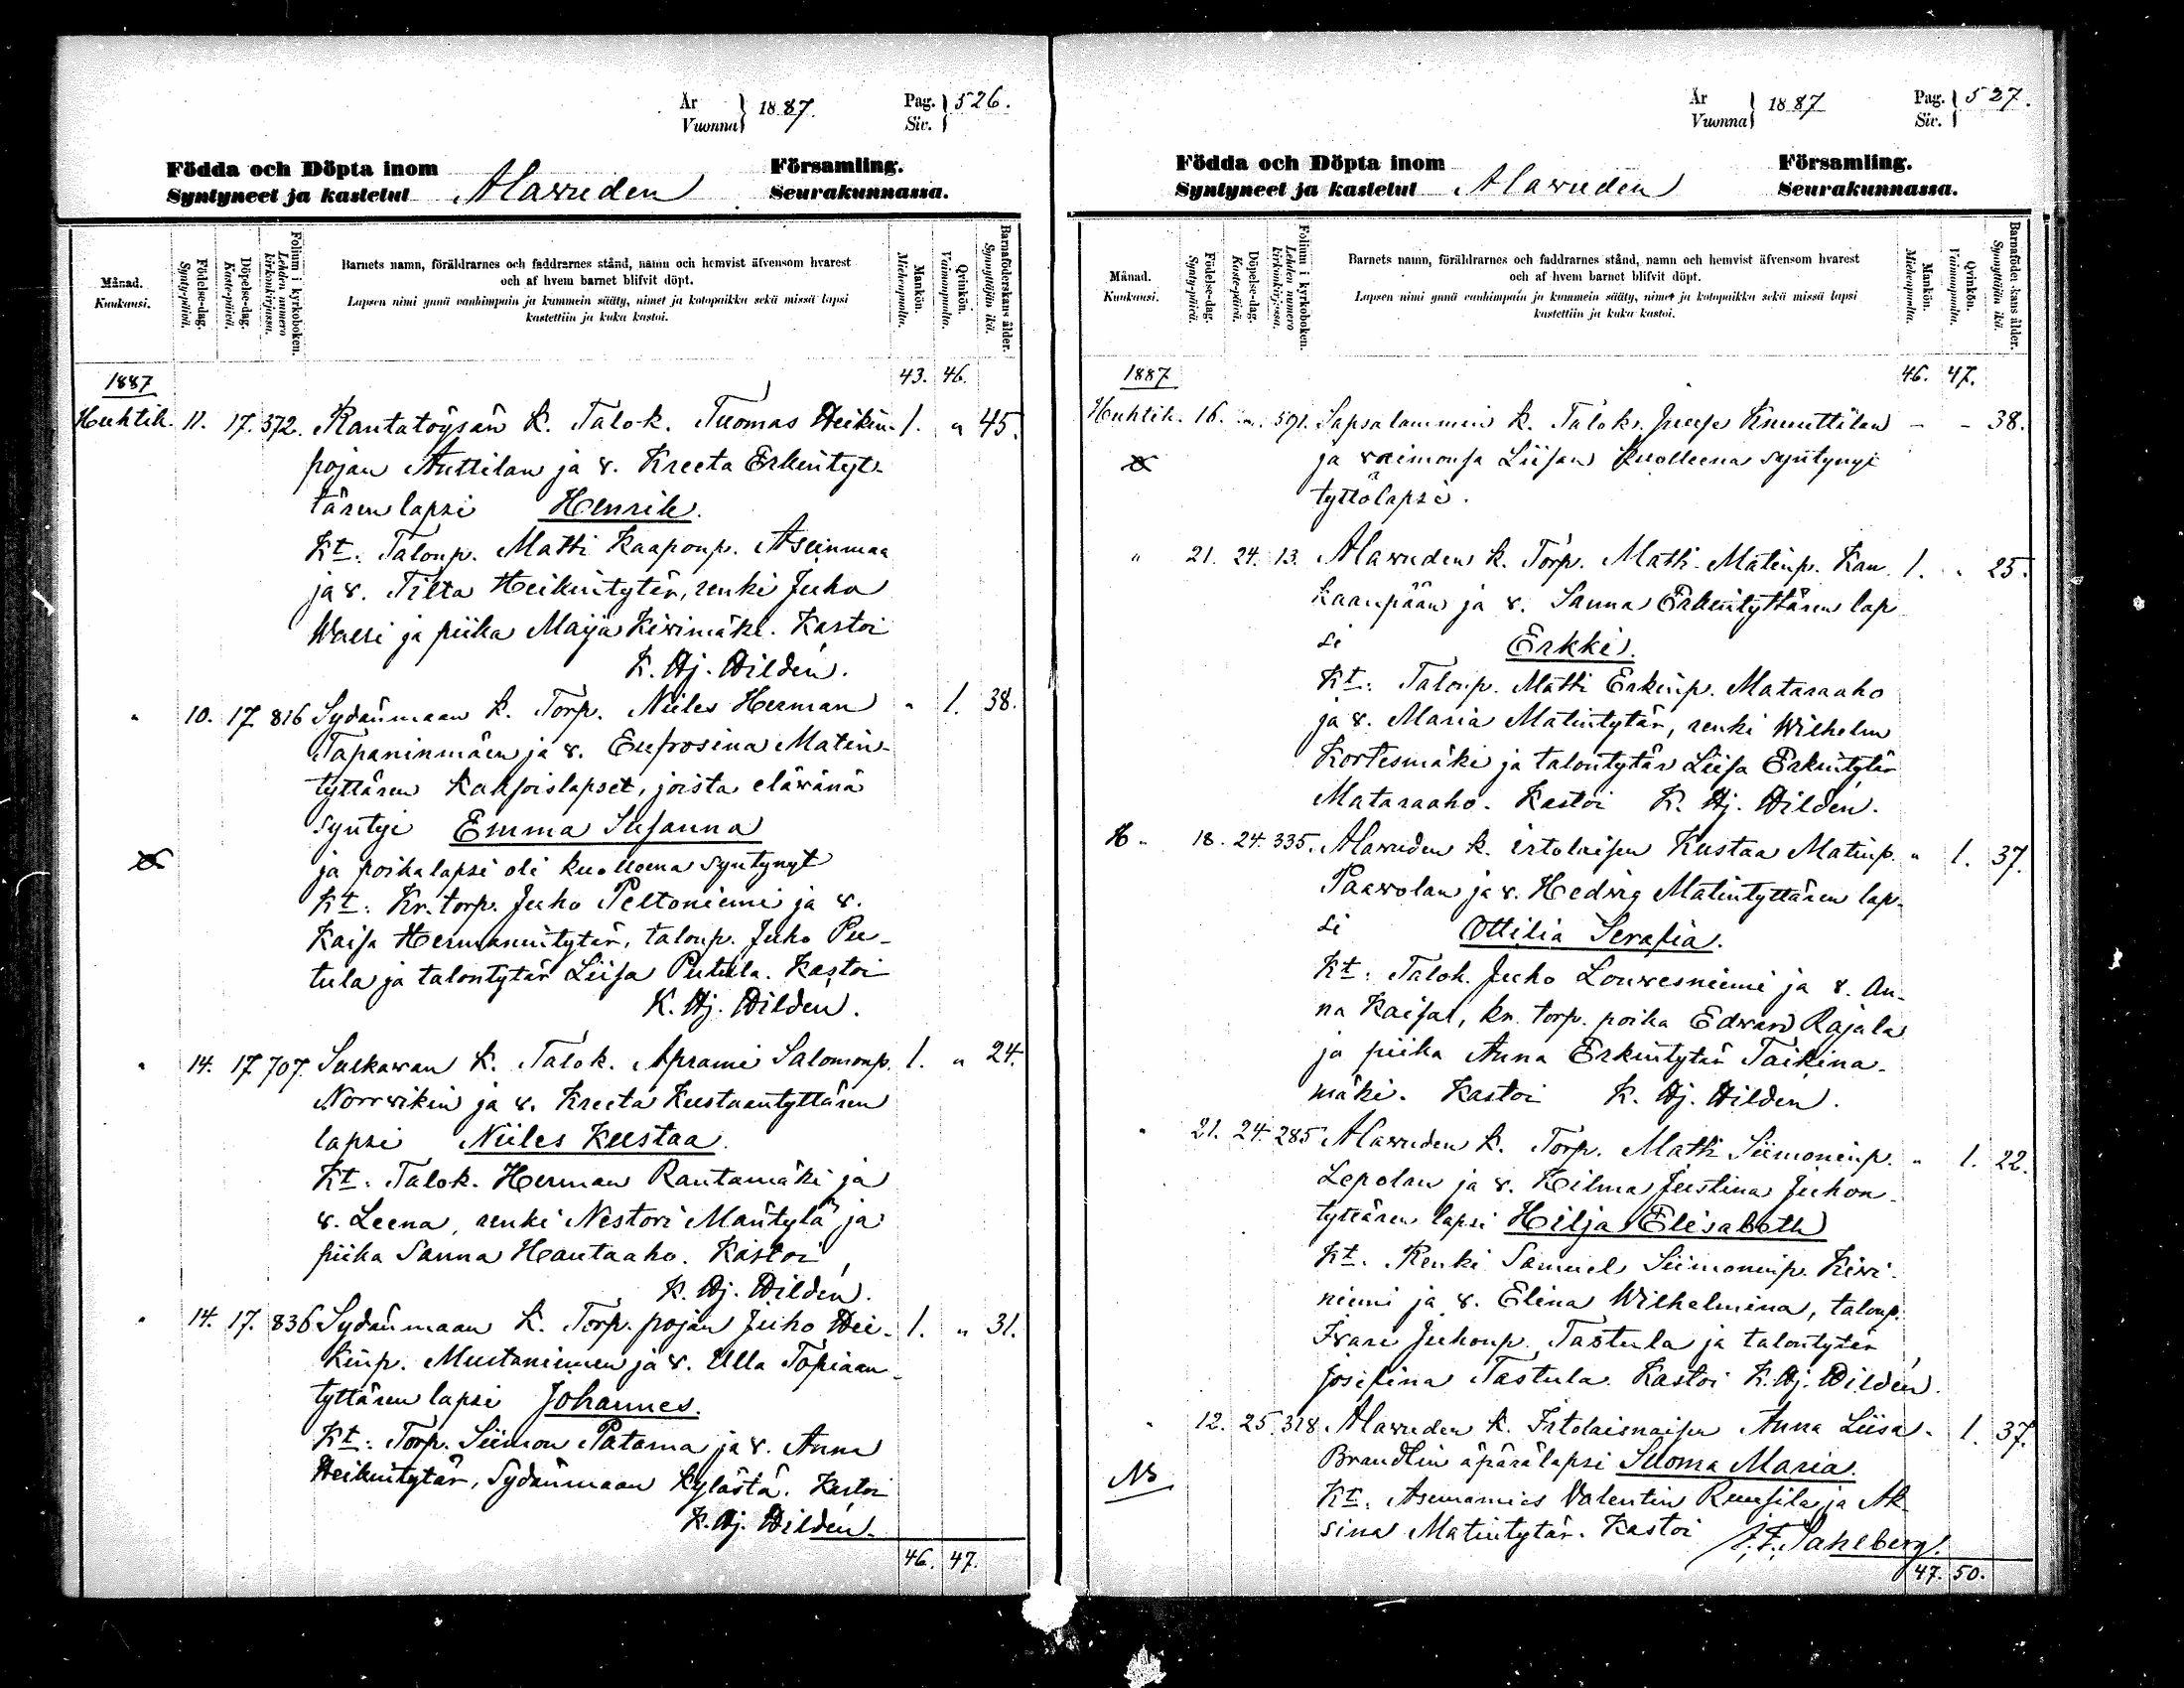 År
Vuonna } 1887. Pag.
Siv. } 526.
Födda och Döpta inom Församling.
Syntyneet ja kastetut Alavuden Seurakunnassa.
Månad.
Kuukausi.
Födelse-dag.
Synty-päivä.
Döpelse-dag.
Kaste-päivä.
Folium i kyrkoboken.
Lehden numero
kirkonkirjassa.
Barnets namn, föräldrarnes och faddrarnes stånd, namn och hemvist äfvensom hvarest
och af hvem barnet blifvit döpt.
Lapsen nimi ynnä vanhimpain ja kummein sääty, nimet ja kotopaikka sekä missä lapsi
kastettiin ja kuka kastoi.
Mankön.
Miehenpuolta.
Qvinkön.
Vaimonpuolta.
Barnaföderskans ålder.
Synnyttäjän ikä.
1887 43. 46.
Huhtik. 11. 17. 572. Rantatöysän k. Talok. Tuomas Heikin- 1. " 45.
pojan Anttilan ja v. Kreeta Erkintyt-
tären lapsi Henrik.
Kt: Taloup. Matti Kaaponp. Aseinmaa
ja v. Tilta Heikintytär, renki Juho
Wassi ja piika Maija Kivimäki. Kastoi
K. Hj. Hildén.
" 10. 17 816 Sydänmaan k. Torp. Niiles Herman " 1. 38.
Tapaninmäen ja v. Eufrosina Matin-
tyttären kaksoislapset, joista elävänä
syntyi Emma Susanna
ja poikalapsi oli kuolleena syntynyt
Kt: Kr. torp. Juho Peltoniemi ja v.
Kaisa Hermannintytär, taloup. Juho Pu-
tula ja talontytär Liisa Putula. Kastoi
K. Hj. Hildén.
" 14. 17 707. Sulkavan k. Talok. Aprami Salomonp. 1. " 24.
Norrvikin ja v. Kreeta Kustaantyttären
lapsi Niiles Kustaa.
Kt: Talok. Herman Rantamäki ja
v. Leena, renki Nestori Mäntylä ja
piika Sanna Hautaaho. Kastoi
K. Hj. Hildén.
" 14. 17. 836 Sydänmaan k. Torp. pojan Juho Hei- 1. " 31.
kinp. Mustaniemen ja v. Ulla Topiaan-
tyttären lapsi Johannes.
Kt: Torp. Siimon Patama ja v. Anna
Heikintytär, Sydänmaan kylästä. Kastoi
K. Hj. Hildén.
46. 47.
År
Vuonna } 1887 Pag.
Siv. } 527.
Födda och Döpta inom Församling.
Syntyneet ja kastetut Alavuden Seurakunnassa.
Månad.
Kuukausi.
Födelse-dag.
Synty-päivä.
Döpelse-dag.
Kaste-päivä.
Folium i kyrkoboken.
Lehden numero
kirkonkirjassa.
Barnets namn, föräldrarnes och faddrarnes stånd, namn och hemvist äfvensom hvarest
och af hvem barnet blifvit döpt.
Lapsen nimi ynnä vanhimpain ja kummein sääty, nimet ja kotopaikka sekä missä lapsi
kastettiin ja kuka kastoi.
Mankön.
Miehenpuolta.
Qvinkön.
Vaimonpuolta.
Barnaföderskans ålder.
Synnyttäjän ikä.
1887 46. 47.
Huhtik. 16. " 591. Sapsalammin k. Talok. Juuse Knuuttilan - - 38.
ja vaimonsa Liisan kuolleena syntynyt
tyttölapsi.
" 21. 24. 13. Alavuden k. Torp. Matti Matinp. Kan 1. " 25.
kaanpään ja v. Sanna Erkintyttären lap
si Erkki.
Kt: Taloup. Matti Erkinp. Mataraaho
ja v. Maria Matintytär, renki Wilhelm
Kortesmäki ja talontytär Liisa Erkintytär
Mataraaho. Kastoi K. Hj. Hildén.
H " 18. 24. 335. Alavuden k. irtolaisen Kustaa Matinp. " 1. 37.
Paavolan ja v. Hedvig Matintyttären lap-
si Ottilia Serafia.
Kt: Talok. Juho Louvesniemi ja v. An-
na Kaisa, kr. torp. poika Edvard Rajala
ja piika Anna Erkintytär Taikina-
mäki. Kastoi K. Hj. Hildén.
" 21. 24. 285 Alavuden k. Torp. Matti Siimoninp. " 1. 22.
Lepolan ja v. Hilma Justina Juhon-
tyttären lapsi Hilja Elisabeth
Kt. Renki Samuel Siimoninp. Kivi-
niemi ja v. Elina Wilhelmina, taloup.
Ivari Juhonp. Tastula ja talontytär
Josefina Tastula. Kastoi K. Hj. Hildén.
" 12. 25. 318 Alavuden k. Irtolaisnaisen Anna Liisa " 1. 37.
Brandtin äpärälapsi Suoma Maria.
NB Kt: Asemamies Valentin Ruusila ja Ak
sina Matintytär. Kastoi J. F. Sahlberg.
47. 50.